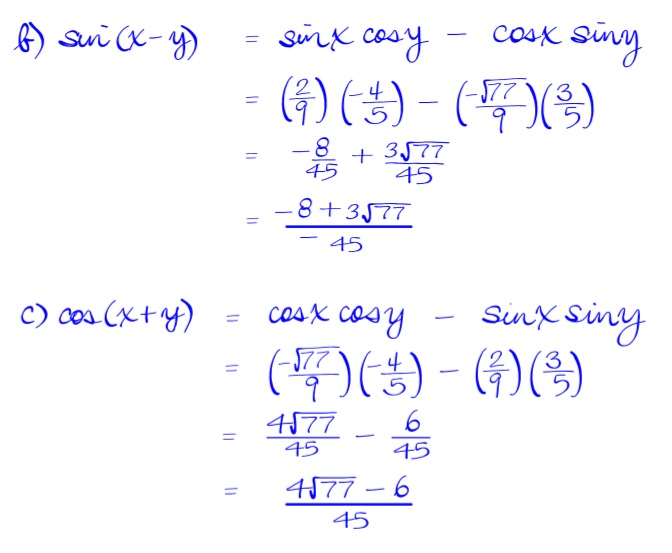 b) sin(x-y) = sinx cosy - cosx siny
= (2/9)(-4/5) - (-√77/9)(3/5)
= -8/45 + 3√77/45
= -8+3√77/45
c) cos(x+y) = cosx cosy - sinx siny
= (-√77/9)(-4/5) - (2/9)(3/5)
= 4√77/45 - 6/45
= 4√77-6/45